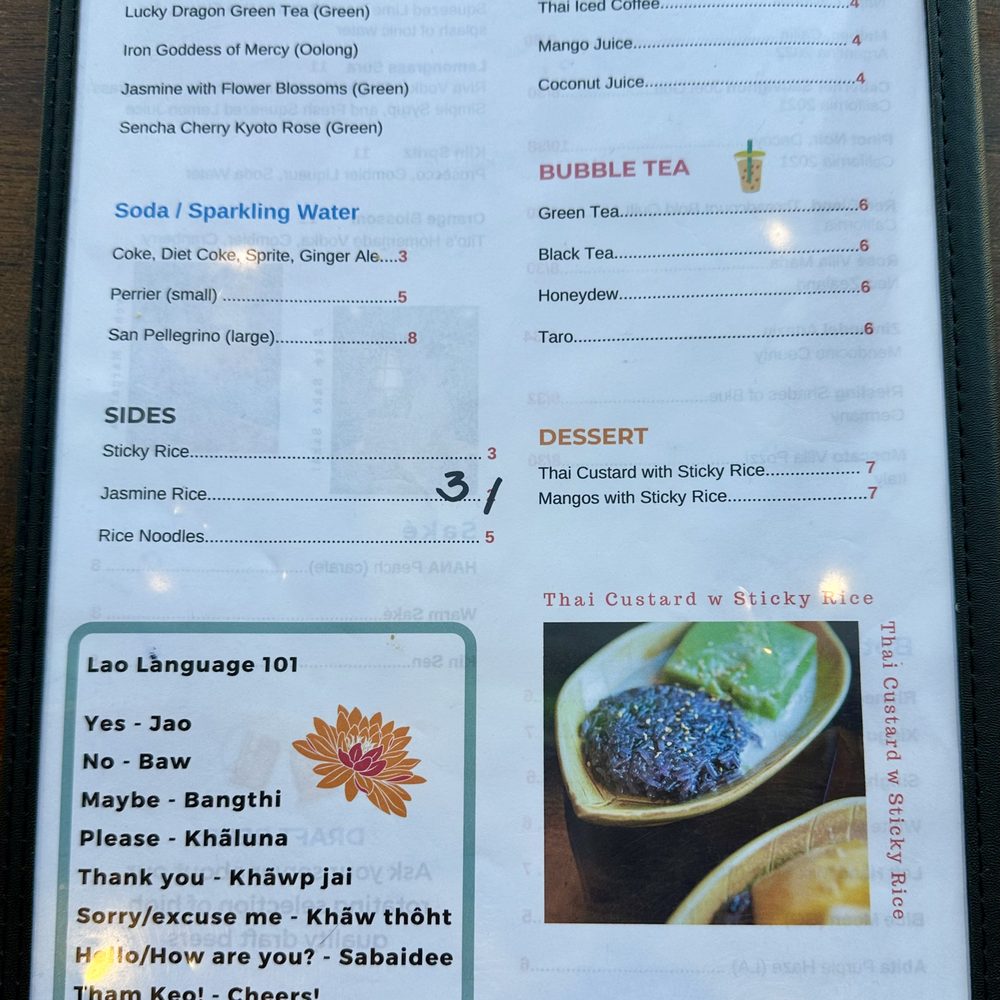 Lucky Dragon Green Tea (Green)
Iron Goddess of Mercy (Oolong)
Jasmine with Flower Blossoms (Green)
Sencha Cherry Kyoto Rose (Green)
Soda / Sparkling Water
Coke, Diet Coke, Sprite, Ginger Ale....3
Perrier (small) ......................................5
San Pellegrino (large)............................8
SIDES
Sticky Rice................................................................ 3
Jasmine Rice............................................................ 3 /
Rice Noodles............................................................ 5
Lao Language 101
Yes - Jao
No - Baw
Maybe - Bangthi
Please - Khãluna
Thank you - Khãwp jai
Sorry/excuse me - Khãw thôht
Hello/How are you? - Sabaidee
Tham Keo! - Cheers!
Thai Iced Coffee..........................................4
Mango Juice................................................4
Coconut Juice..............................................4
BUBBLE TEA
Green Tea....................................................6
Black Tea.....................................................6
Honeydew....................................................6
Taro..............................................................6
DESSERT
Thai Custard with Sticky Rice.................... 7
Mangos with Sticky Rice.............................7
Thai Custard w Sticky Rice
Thai Custard w Sticky Rice